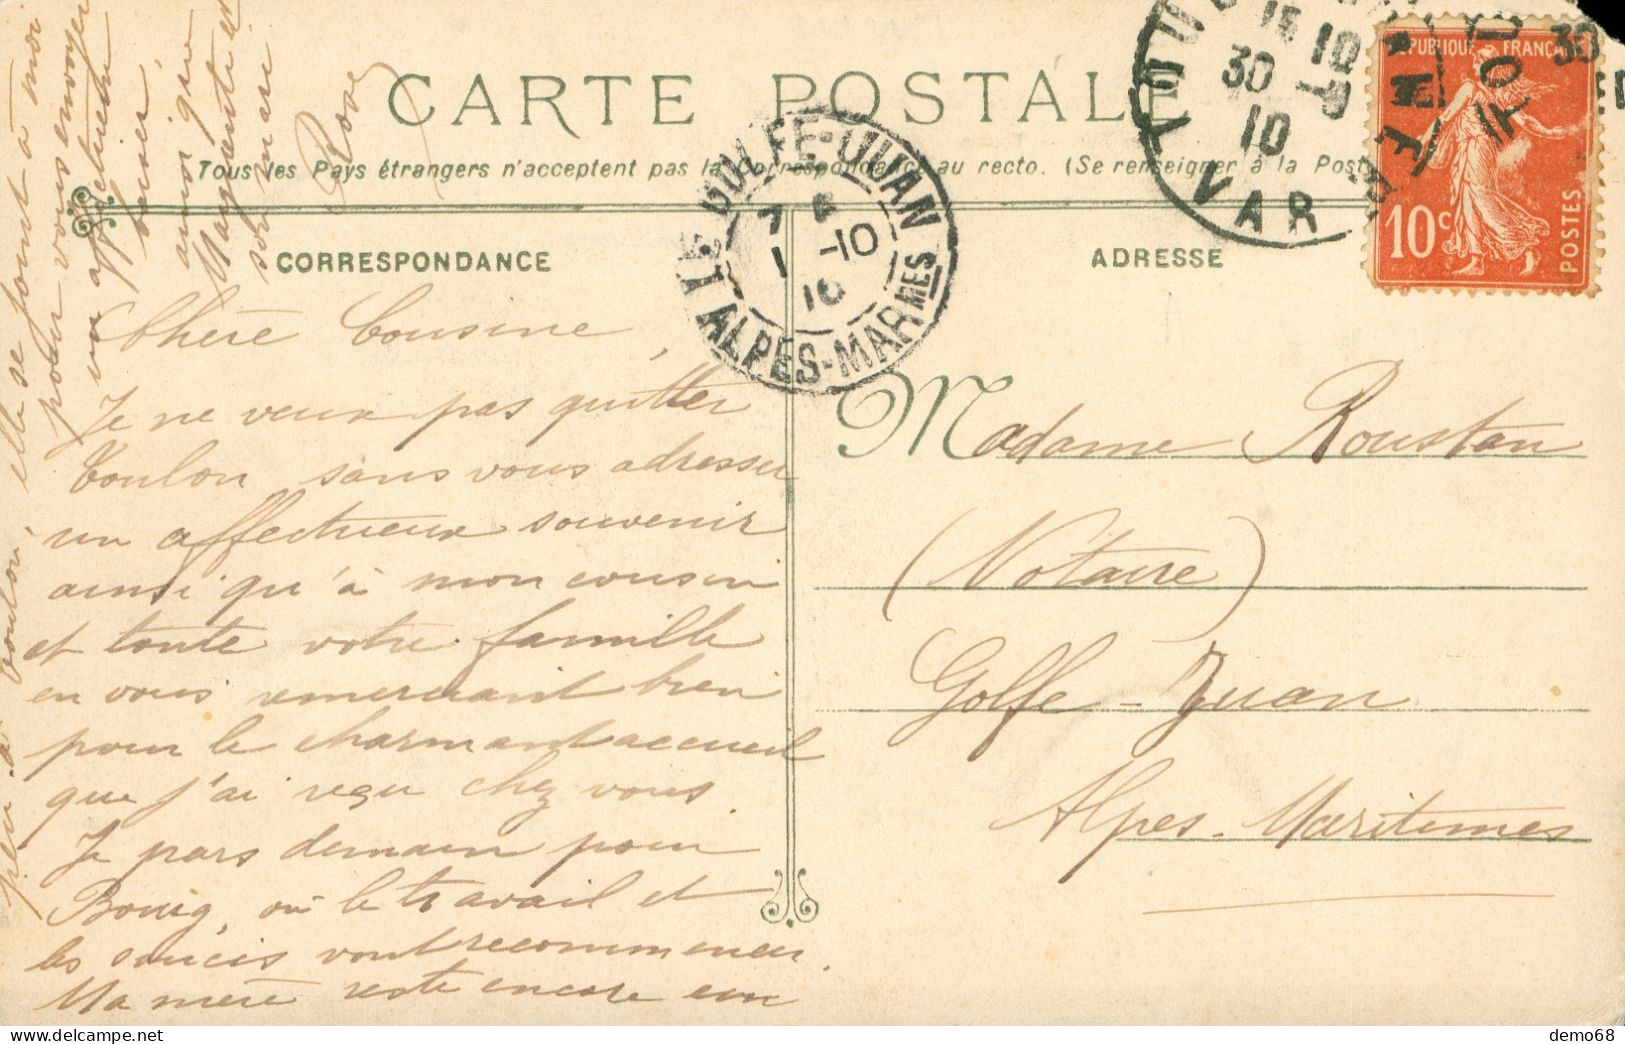 CARTE POSTALE
Tous les Pays étrangers n'acceptent pas la Correspondance au recto. (Se renseigner à la Poste
CORRESPONDANCE
ADRESSE
Chère Cousine,
Je ne veux pas quitter
Toulon sans vous adresser
un affectueux souvenir
ainsi qu'à mon cousin
et toute votre famille
en vous remerciant bien
pour le charmant accueil
que j'ai reçu chez vous.
Je pars demain pour
Bourg, où le travail et
les soucis vont recommencer.
Ma mère reste encore un
peu à Toulon, elle se joint à moi
pour vous envoyer
un affectueux
baiser,
ainsi que
Marguerite et
son mari
Rose
Madame Roustan
(Notaire)
Golfe-Juan
Alpes-Maritimes
GOLFE-JUAN
7 1 -10
10
ALPES-MARMES
TOUL
15 10
30 -9
10
VAR
30
RÉPUBLIQUE FRANÇAI
10c
POSTES
demo68